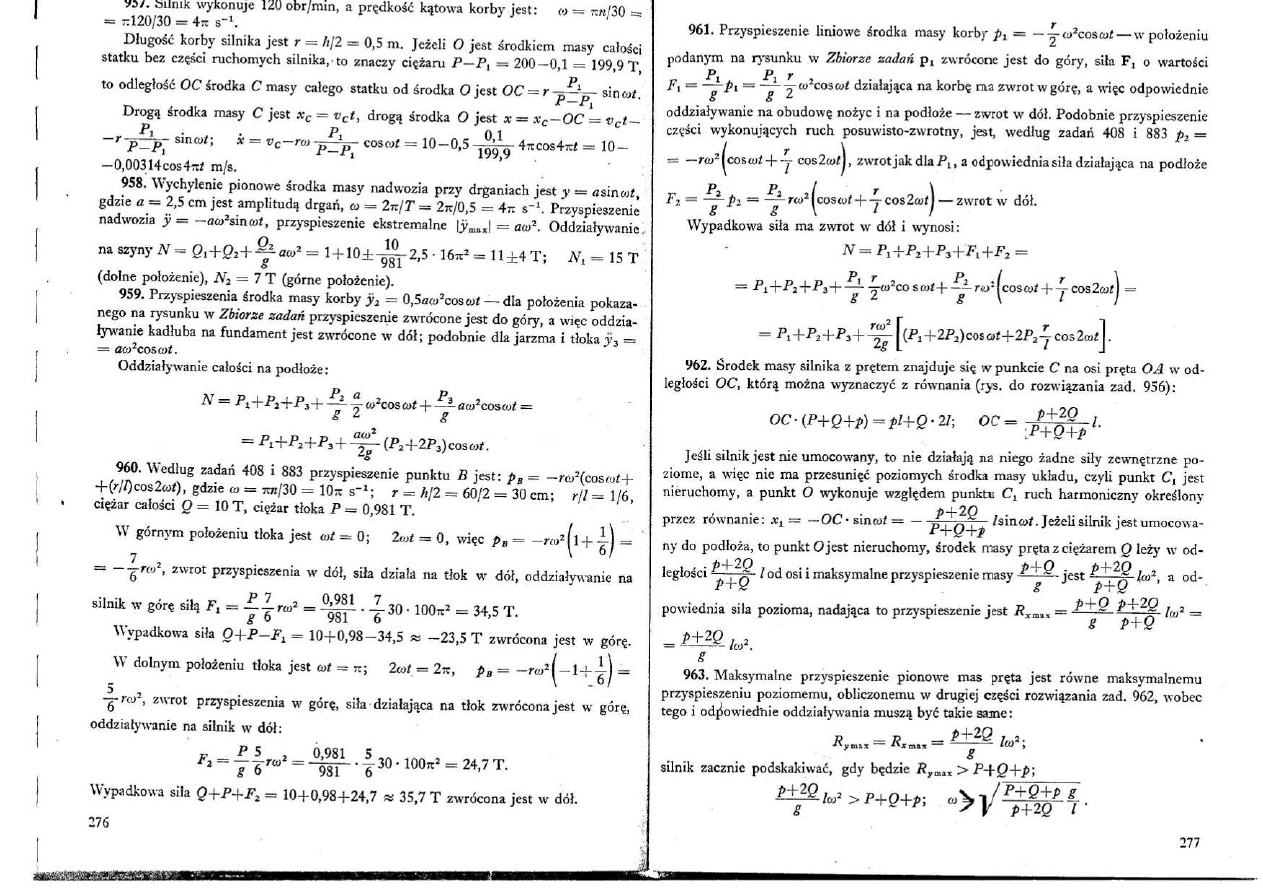 957. Silnik wykonuje 120 obr/min, a prędkość kątowa korby jest: ω = πn/30 =
= π120/30 = 4π s⁻¹.
Długość korby silnika jest r = h/2 = 0,5 m. Jeżeli O jest środkiem masy całości
statku bez części ruchomych silnika, to znaczy ciężaru P—P₁ = 200—0,1 = 199,9 T,
to odległość OC środka C masy całego statku od środka O jest OC = r P₁/(P—P₁) sin ωt.
Drogą środka masy C jest x_C = v_C t, drogą środka O jest x = x_C—OC = v_C t—
—r P₁/(P—P₁) sin ωt; ẋ = v_C—rω P₁/(P—P₁) cos ωt = 10—0,5 0,1/199,9 4π cos 4πt = 10—
—0,00314 cos 4πt m/s.
958. Wychylenie pionowe środka masy nadwozia przy drganiach jest y = a sin ωt,
gdzie a = 2,5 cm jest amplitudą drgań, ω = 2π/T = 2π/0,5 = 4π s⁻¹. Przyspieszenie
nadwozia ÿ = —aω² sin ωt, przyspieszenie ekstremalne |ÿmax| = aω². Oddziaływanie
na szyny N = Q₁+Q₂+ Q₂/g aω² = 1+10± 10/981 2,5 · 16π² = 11±4 T; N₁ = 15 T
(dolne położenie), N₂ = 7 T (górne położenie).
959. Przyspieszenia środka masy korby ÿ₂ = 0,5aω² cos ωt — dla położenia pokaza-
nego na rysunku w Zbiorze zadań przyspieszenie zwrócone jest do góry, a więc oddzia-
ływanie kadłuba na fundament jest zwrócone w dół; podobnie dla jarzma i tłoka ÿ₃ =
= aω² cos ωt.
Oddziaływanie całości na podłoże:
N = P₁+P₂+P₃+ P₂/g a/2 ω² cos ωt + P₃/g aω² cos ωt =
= P₁+P₂+P₃+ aω²/2g (P₂+2P₃) cos ωt.
960. Według zadań 408 i 883 przyspieszenie punktu B jest: p_B = —rω²(cos ωt+
+(r/l) cos 2ωt), gdzie ω = πn/30 = 10π s⁻¹; r = h/2 = 60/2 = 30 cm; r/l = 1/6,
ciężar całości Q = 10 T, ciężar tłoka P = 0,981 T.
W górnym położeniu tłoka jest ωt = 0; 2ωt = 0, więc p_B = —rω²(1+ 1/6) =
= — 7/6 rω², zwrot przyspieszenia w dół, siła działa na tłok w dół, oddziaływanie na
silnik w górę siłą F₁ = P/g 7/6 rω² = 0,981/981 · 7/6 30 · 100π² = 34,5 T.
Wypadkowa siła Q+P—F₁ = 10+0,98—34,5 ≈ —23,5 T zwrócona jest w górę.
W dolnym położeniu tłoka jest ωt = π; 2ωt = 2π, p_B = —rω²(—1+ 1/6) =
5/6 rω², zwrot przyspieszenia w górę, siła działająca na tłok zwrócona jest w górę,
oddziaływanie na silnik w dół:
F₂ = P/g 5/6 rω² = 0,981/981 · 5/6 30 · 100π² = 24,7 T.
Wypadkowa siła Q+P+F₂ = 10+0,98+24,7 ≈ 35,7 T zwrócona jest w dół.
276
961. Przyspieszenie liniowe środka masy korby p₁ = — r/2 ω² cos ωt — w położeniu
podanym na rysunku w Zbiorze zadań p₁ zwrócone jest do góry, siła F₁ o wartości
F₁ = P₁/g p₁ = P₁/g r/2 ω² cos ωt działająca na korbę ma zwrot w górę, a więc odpowiednie
oddziaływanie na obudowę nożyc i na podłoże — zwrot w dół. Podobnie przyspieszenie
części wykonujących ruch posuwisto-zwrotny, jest, według zadań 408 i 883 p₂ =
= —rω²(cos ωt+ r/l cos 2ωt), zwrot jak dla P₁, a odpowiednia siła działająca na podłoże
F₂ = P₂/g p₂ = P₂/g rω²(cos ωt+ r/l cos 2ωt) — zwrot w dół.
Wypadkowa siła ma zwrot w dół i wynosi:
N = P₁+P₂+P₃+F₁+F₂ =
= P₁+P₂+P₃+ P₁/g r/2 ω² cos ωt+ P₂/g rω²(cos ωt + r/l cos 2ωt) =
= P₁+P₂+P₃+ rω²/2g [(P₁+2P₂) cos ωt+2P₂ r/l cos 2ωt].
962. Środek masy silnika z prętem znajduje się w punkcie C na osi pręta OA w od-
ległości OC, którą można wyznaczyć z równania (rys. do rozwiązania zad. 956):
OC · (P+Q+p) = pl+Q · 2l; OC = (p+2Q)/(P+Q+p) l.
Jeśli silnik jest nie umocowany, to nie działają na niego żadne siły zewnętrzne po-
ziome, a więc nie ma przesunięć poziomych środka masy układu, czyli punkt C₁ jest
nieruchomy, a punkt O wykonuje względem punktu C₁ ruch harmoniczny określony
przez równanie: x₁ = —OC · sin ωt = — (p+2Q)/(P+Q+p) l sin ωt. Jeżeli silnik jest umocowa-
ny do podłoża, to punkt O jest nieruchomy, środek masy pręta z ciężarem Q leży w od-
ległości (p+2Q)/(p+Q) l od osi i maksymalne przyspieszenie masy (p+Q)/g jest (p+2Q)/(p+Q) lω², a od-
powiednia siła pozioma, nadająca to przyspieszenie jest Rxmax = (p+Q)/g (p+2Q)/(p+Q) lω² =
= (p+2Q)/g lω².
963. Maksymalne przyspieszenie pionowe mas pręta jest równe maksymalnemu
przyspieszeniu poziomemu, obliczonemu w drugiej części rozwiązania zad. 962, wobec
tego i odpowiednie oddziaływania muszą być takie same:
Rymax = Rxmax = (p+2Q)/g lω²;
silnik zacznie podskakiwać, gdy będzie Rymax > P+Q+p;
(p+2Q)/g lω² > P+Q+p; ω > √((P+Q+p)/(p+2Q) g/l).
277